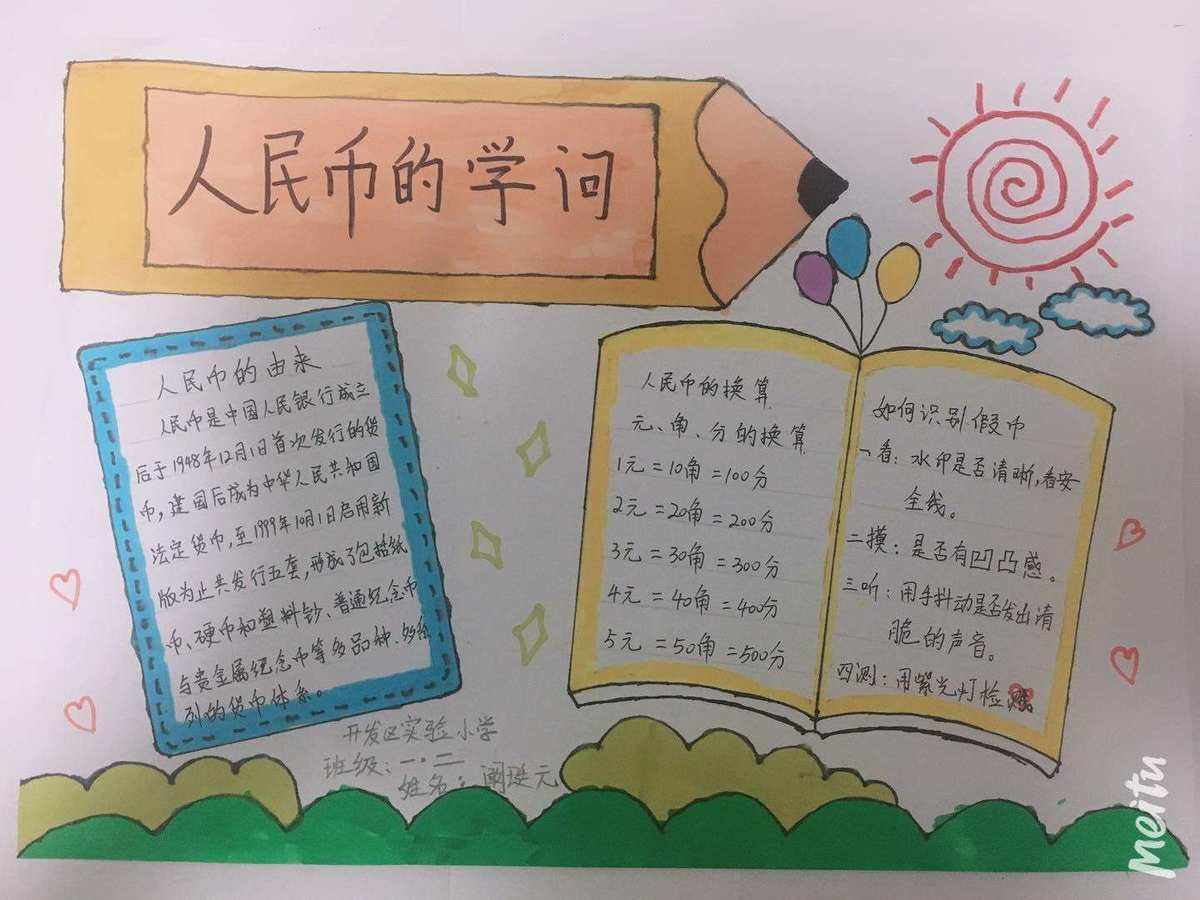 人民币的学问
人民币的由来
人民币是中国人民银行成立
后于1948年12月1日首次发行的货
币，建国后成为中华人民共和国
法定货币，至1999年10月1日启用新
版为止共发行五套，形成了包括纸
币、硬币和塑料钞、普通纪念币
与贵金属纪念币等多品种、多系
列的货币体系。
人民币的换算
元、角、分的换算
1元=10角=100分
2元=20角=200分
3元=30角=300分
4元=40角=400分
5元=50角=500分
如何识别假币
一看：水印是否清晰，看安
全线。
二摸：是否有凹凸感。
三听：用手抖动是否发出清
脆的声音。
四测：用紫光灯检
开发区实验小学
班级：一.二
姓名：阚 元
Meitu